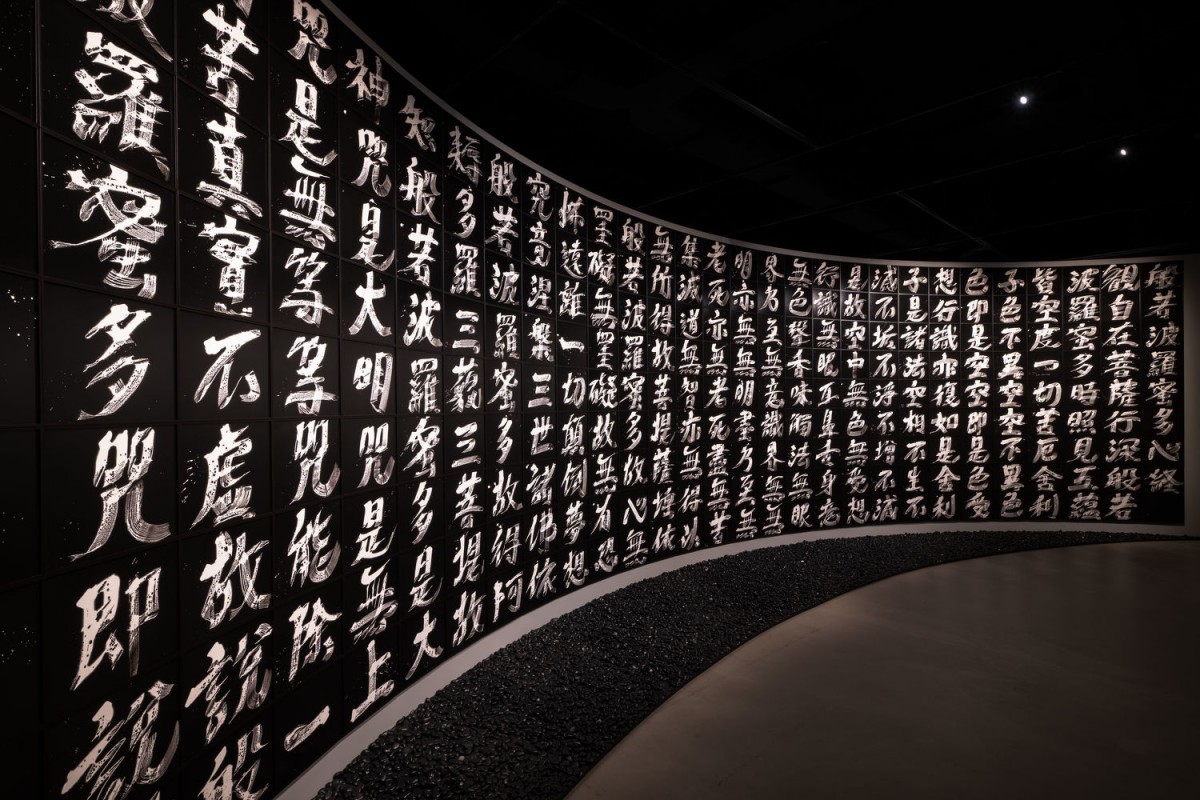 般若波羅蜜多心經
觀自在菩薩行深般若
波羅蜜多時照見五蘊
皆空度一切苦厄舍利
子色不異空空不異色
色即是空空即是色受
想行識亦復如是舍利
子是諸法空相不生不
滅不垢不淨不增不減
是故空中無色無受想
行識無眼耳鼻舌身意
無色聲香味觸法無眼
界乃至無意識界無無
明亦無無明盡乃至無
老死亦無老死盡無苦
集滅道無智亦無得以
無所得故菩提薩埵依
般若波羅蜜多故心無
罣礙無罣礙故無有恐
怖遠離一切顛倒夢想
究竟涅槃三世諸佛依
般若波羅蜜多故得阿
耨多羅三藐三菩提故
知般若波羅蜜多是大
神咒是大明咒是無上
咒是無等等咒能除一
苦真實不虛故說般
羅蜜多咒即說